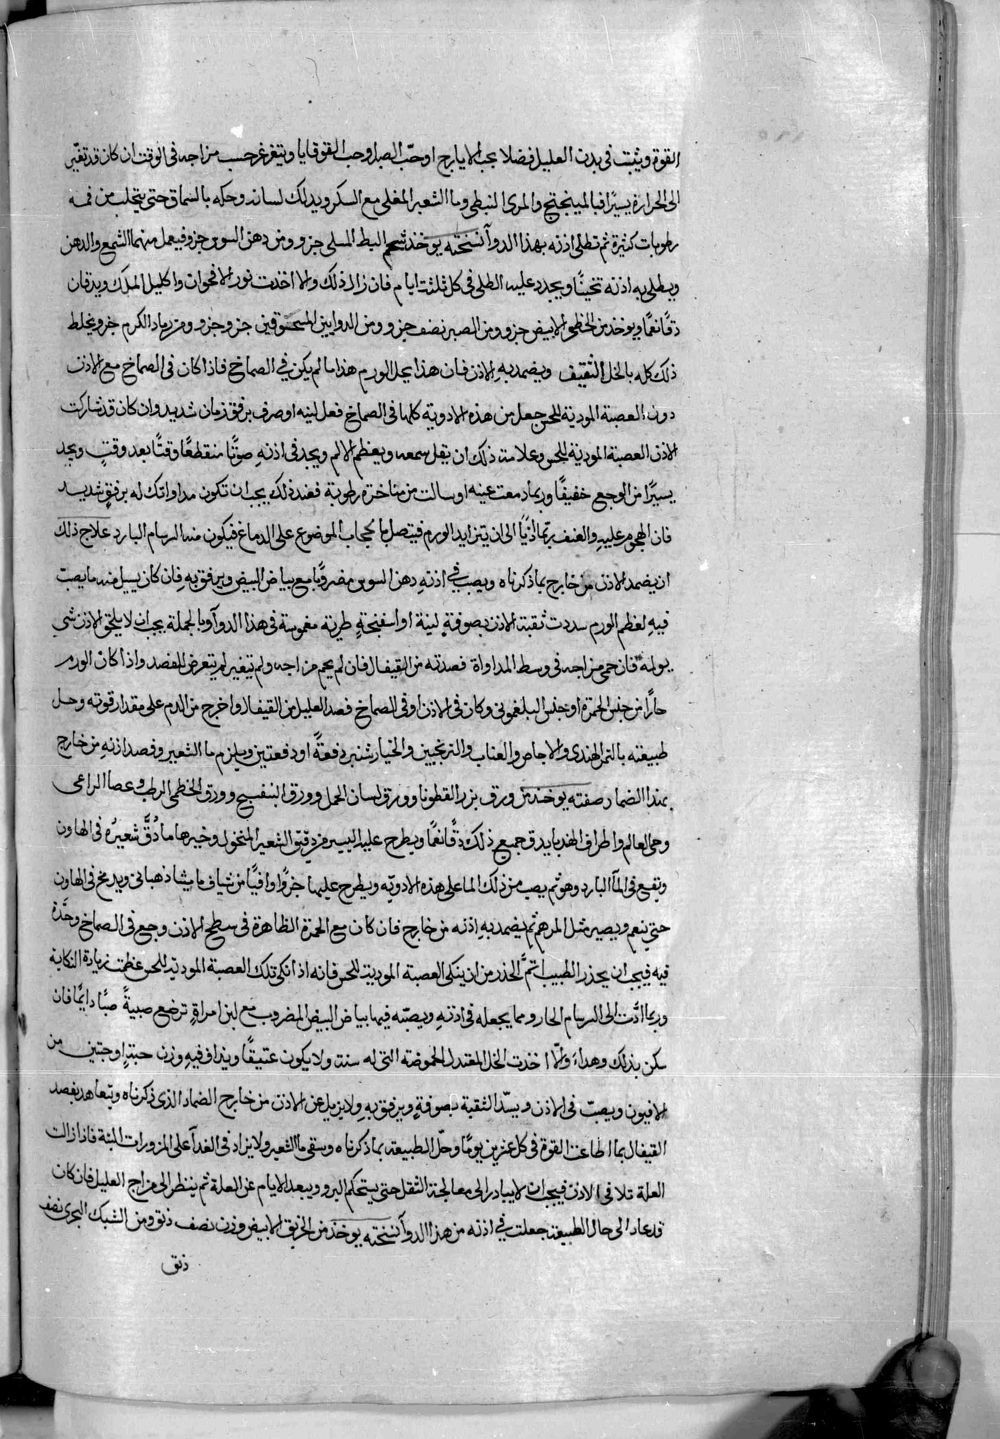 القوة ويثبت فى بدن العليل فضلا بحب الايارج او حب الصبر او حب القوقايا ويتغرغر حسب مزاجه فى الوقت ان كان قد تغير
الى الحرارة يسيرًا فبالميبختج والمرى النبطى وما الشعير المغلى مع السكر ويدلك لسانه وحكه بالسماق حتى يتحلب من فمه
رطوبات كثيرة ثم تطلى اذنه بهذا الدوآ نسخته يوخذ شحم البط المسلى جزو ومن دهن السوسن جزو فيعمل منهما الشمع والدهن
ويطلى به اذنه تحينًا ويجدد عليه الطلى فى كل ثلثة ايام فان زال ذلك والا اخذت نور الاقحوان واكليل الملك ويدقان
دقًا ناعمًا ويوخذ من الخطمى الابيض جزو ومن الصبر نصف جزو ومن الدوايين المسحوقين جزو جزو ومن رماد الكرم جزو يخلط
ذلك كله بالخل الثقيف ويضمد به الاذن فان هذا يحل الورم هذا ما لم يكن فى الصماخ فاذا كان فى الصماخ مع الاذن
دون العصبة المودية للحس جعل من هذه الادوية كلها فى الصماخ فعل لينه او صرف برفق زمان شديد وان كان قد شاركت
الاذن العصبة المودية للحس وعلامة ذلك ان يقل سمعه ويعظم الالم ويجد فى اذنهِ صوتًا منقطعًا وقتًا بعد وقتٍ ويجد
يسيرًا من الوجع خفيفًا وربما دمعت عينه او سالت من مناخره رطوبة فعند ذلك يجب ان تكون مداواتك له برفق شديد
فان الهجوم عليهِ والعنف ربما ادّيًا الى ان يتزايد الورم فيتصل بالحجاب الموضوع على الدماغ فيكون منه السرسام البارد علاج ذلك
ان يضمد الاذن من خارج بما ذكرناه ويصب فى اذنهِ دهن السوسن مضروبًا مع بياض البيض ويرفق به فان كان يسيل منه ما يصب
فيه لعظم الورم سددت ثقبة الاذن بصوفةٍ لينة او اسفنجةٍ طرية مغموسة فى هذا الدوآ وبالجملة يجب ان لا يلحق الاذن شى
يولمه فان حمى مزاجه فى وسط المداواة فصدته من القيفال فان لم يحم مزاجه ولم تتغير لم تتعرض للفصد واذا كان الورم
حارًا من جنس الحمرة او جنس البلغمونى وكان فى الاذن او فى الصماخ فصد العليل من القيفال واخرج من الدم على مقدار قوته وحل
طبيعته بالتمر الهندى والاجاص والعناب والترنجبين والخيارشنبر دفعةً او دفعتين ويلزم ما الشعير وفصد اذنهِ من خارج
بهذا الضماد صفته يوخذ من ورق بزر القطونا وورق لسان الحمل وورق البنفسج وورق الخطمى الرطب وعصا الراعى
وحى العالم واطراف الهندبا يدق جميع ذلك دقًا ناعمًا ويطرح عليه اليسير من دقيق الشعير المنخول وخيرها ما دُقَّ شعيرُه فى الهاون
ونقع فى المآ البارد وهو ثم يصب من ذلك الما على هذه الادوية ويطرح عليها جزًوا وافيًا من شياف ماميثا ذهبانى ويدمخ فى الهاون
حتى ينعم ويصير مثل المرهم ثم يضمد به اذنه من خارج فان كان مع الحمرة الظاهرة فى سطح الاذن وجع فى الصماخ وحدّة
فيه فيجب ان يحذر الطبيب اتمَّ الحذر من ان ينكى العصبة المودية للحس فانه اذا نكى تلك العصبة المودية للحس عظمت زيادة النكاية
وربما ادّت الى السرسام الحار ومما يجعله فى اذنهِ ويصبه فيها بياض البيض المضروب مع لبن امراةٍ ترضع صبيةً صبًا دايمًا فان
سكن بذلك وهداء والّا اخذت الخل المعتدل الحموضة التى له سنة ولا يكون عتيقًا ويذاف فيهِ وزن حبةٍ او حبتين من
الافيون ويصب فى الاذن ويسد الثقبة بصوفةٍ ويرفق به ولا يزيل عن الاذن من خارج الضماد الذى ذكرناه ويتعاهد بفصد
القيفال بما اطاعت القوة فى كل عشرين يومًا وحل الطبيعة بما ذكرناه وسقى ما الشعير ولا يزاد فى الغدآ على المزورات البتة فاذا زالت
العلة تلافى الاذن فيجب ان لا يبادر الى معالجة الثقل حتى يستحكم البرو ويبعد الايام عن العلة ثم ينظر الى مزاج العليل فان كان
قد عاد الى حال الطبيعة جعلت فى اذنه من هذا الدوآ نسخته يوخذ من الخربق الابيض وزن نصف دنق ومن الشبك البحرى نصف
دنق